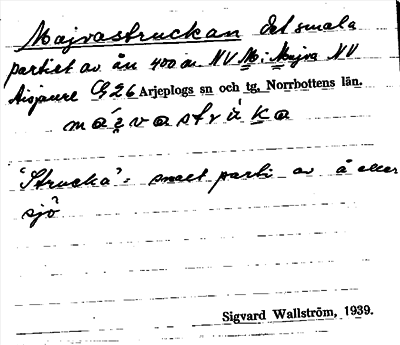 Majvastruckan det smala
partiet av ån 400 m. NV M. i Majva NV
Aisjaure G26 Arjeplogs sn och tg, Norrbottens län.
"Strucka" = smalt parti av å eller
sjö
Sigvard Wallström, 1939.